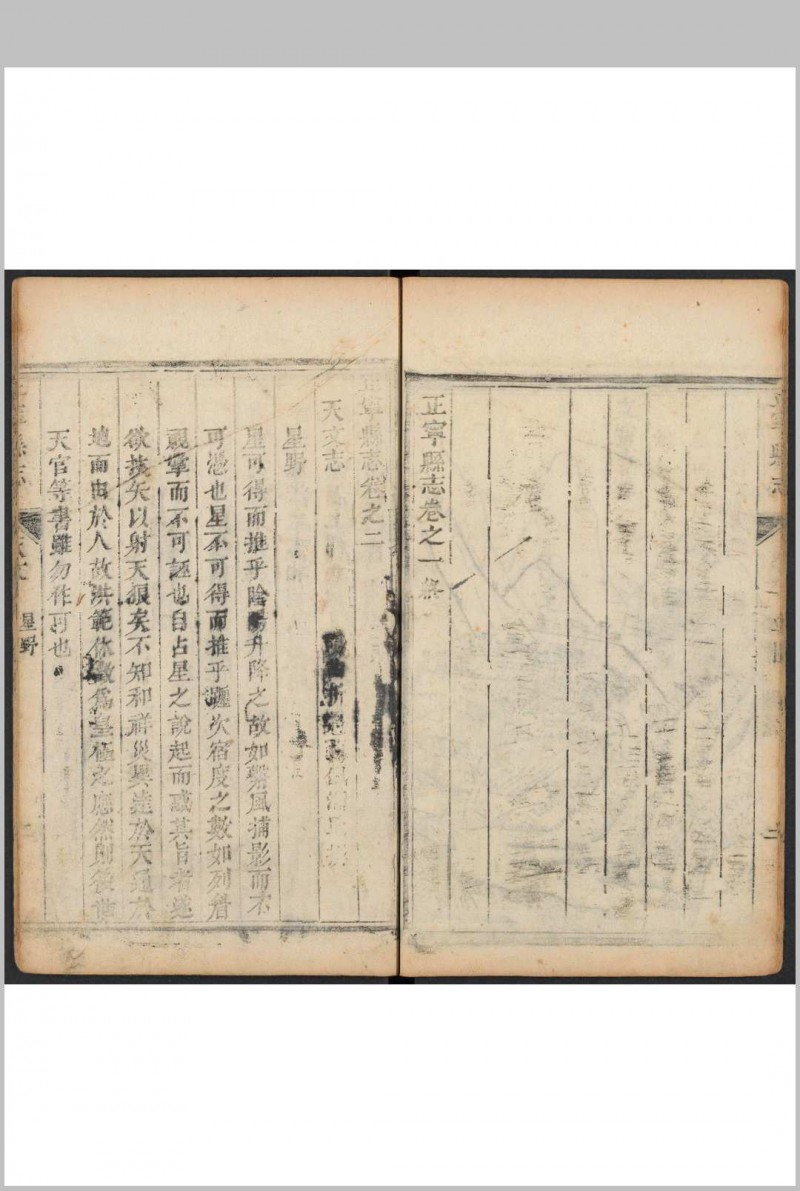 正寧縣志卷之一終
正寧縣志卷之二
天文志
星野
星可得而推乎陰陽升降之故如繫風捕影而不
可憑也星不可得而推乎躔次宿度之數如列眉
視掌而不可誣也自占星之說起而惑其旨者遂
欲挾矢以射天狠矣不知和祥災異達於天通於
地而由於人故洪範休徵為皇極之應然則後世
天官等書雖勿作可也
星野